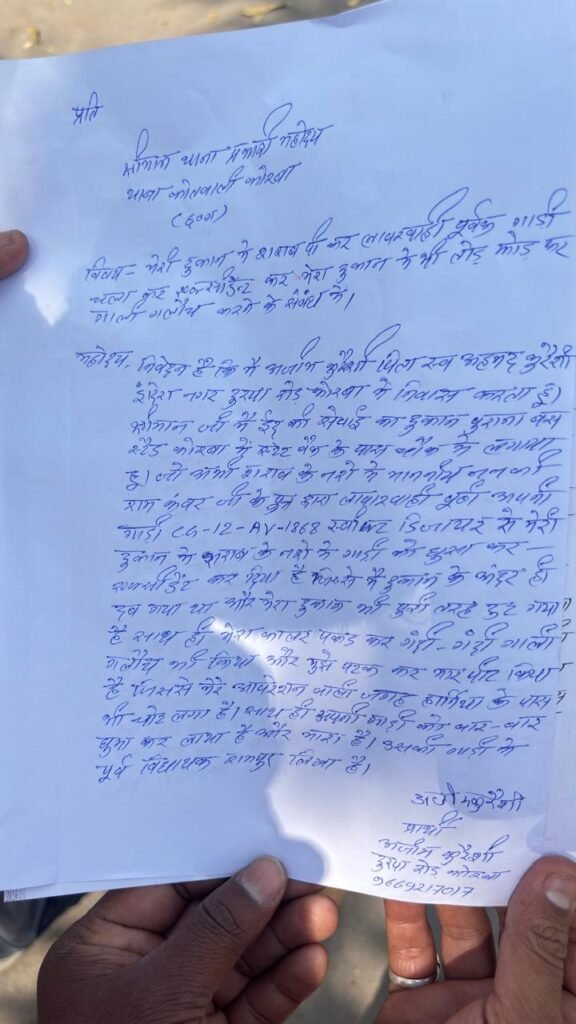 प्रति
श्रीमान थाना प्रभारी महोदय
थाना कोतवाली कोरबा
(छ०ग०)
विषय- मेरी दुकान में शराब पी कर लापरवाही पूर्वक गाडी
चला कर एक्सीडेन्ट कर मेरा दुकान में भी तोड़ फोड़ कर
गाली गलौच करने के संबंध में।
महोदय, निवेदन है कि मैं अजीम कुरैशी पिता स्व अहमद कुरैशी
इंदिरा नगर दुरपा रोड कोरबा में निवास करता हूं।
श्रीमान जी मैं ईद की सेवाई का दुकान पुराना बस
स्टैंड कोरबा में स्टेट बैंक के पास चौक में लगाया
हूं। जो अभी शराब के नशे में माननीय ननकी
राम कंवर जी के पुत्र द्वारा लापरवाही पूर्वक अपनी
गाड़ी CG-12-AV-1868 स्वीफ्ट डिजायर से मेरी
दुकान में शराब के नशे में गाडी को घुसा कर-
एक्सीडेंट कर दिया है जिससे मैं दुकान के अंदर ही
दब गया था और मेरा दुकान भी पुरी तरह टुट गया
है साथ ही मेरा कालर पकड कर गंदी-गंदी गाली
गलौच भी किया और मुझे पटक कर मार पीट किया
है जिससे मेरे आपरेशन वाली जगह हार्निया के पास
भी चोट लगा है। साथ ही अपनी गाडी को बार-बार
घुमा कर लाया है और मारा है। उसकी गाडी में
पूर्व विधायक रामपुर लिखा है।
अजीम कुरैशी
प्रार्थी
अजीम कुरैशी
दुरपा रोड कोरबा
9669217017